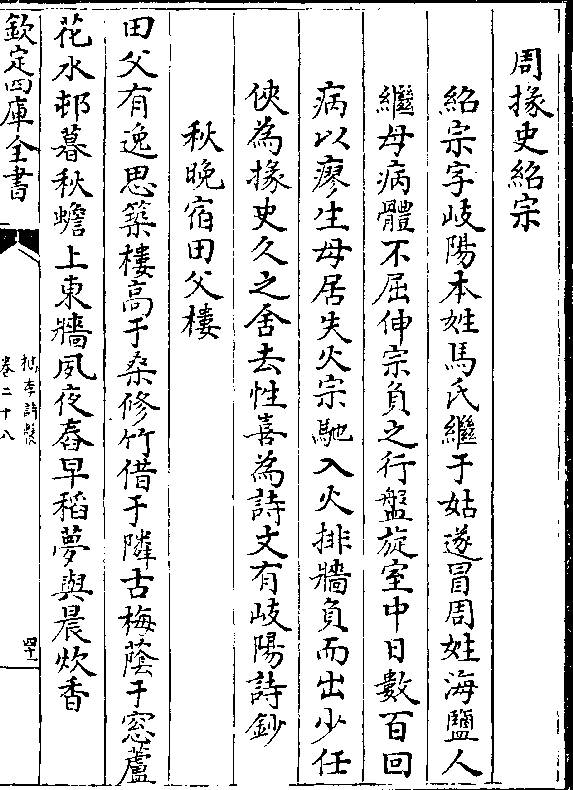 周掾史紹宗
紹宗字岐陽本姓馬氏繼于姑遂冒周姓海鹽人
繼母病體不屈伸宗負之行盤旋室中日數百回
病以瘳生母居失火宗馳入火排牆負而出少任
俠為掾史久之舍去性喜為詩文有岐陽詩鈔
秋晚宿田父樓
田父有逸思築樓高于桑修竹借于隣古梅蔭于窓蘆
花水邨暮秋蟾上東牆夙夜舂早稻夢與晨炊香
欽定四庫全書
檇李詩繫
卷二十八